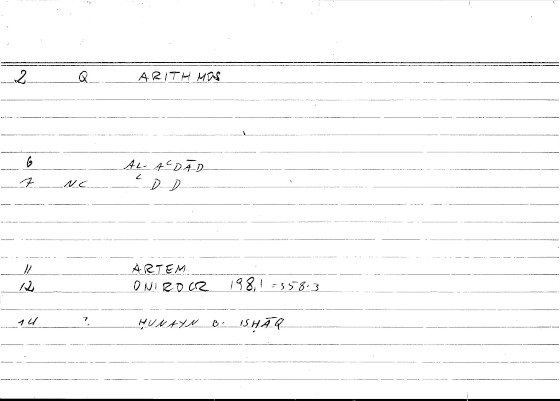 2 Q ARITHMOS
6 AL-AʿDĀD
7 NC ʿDD
11 ARTEM
12 ONIROCR 198,1 = 358.3
14 ? ḤUNAYN B. ISḤĀQ